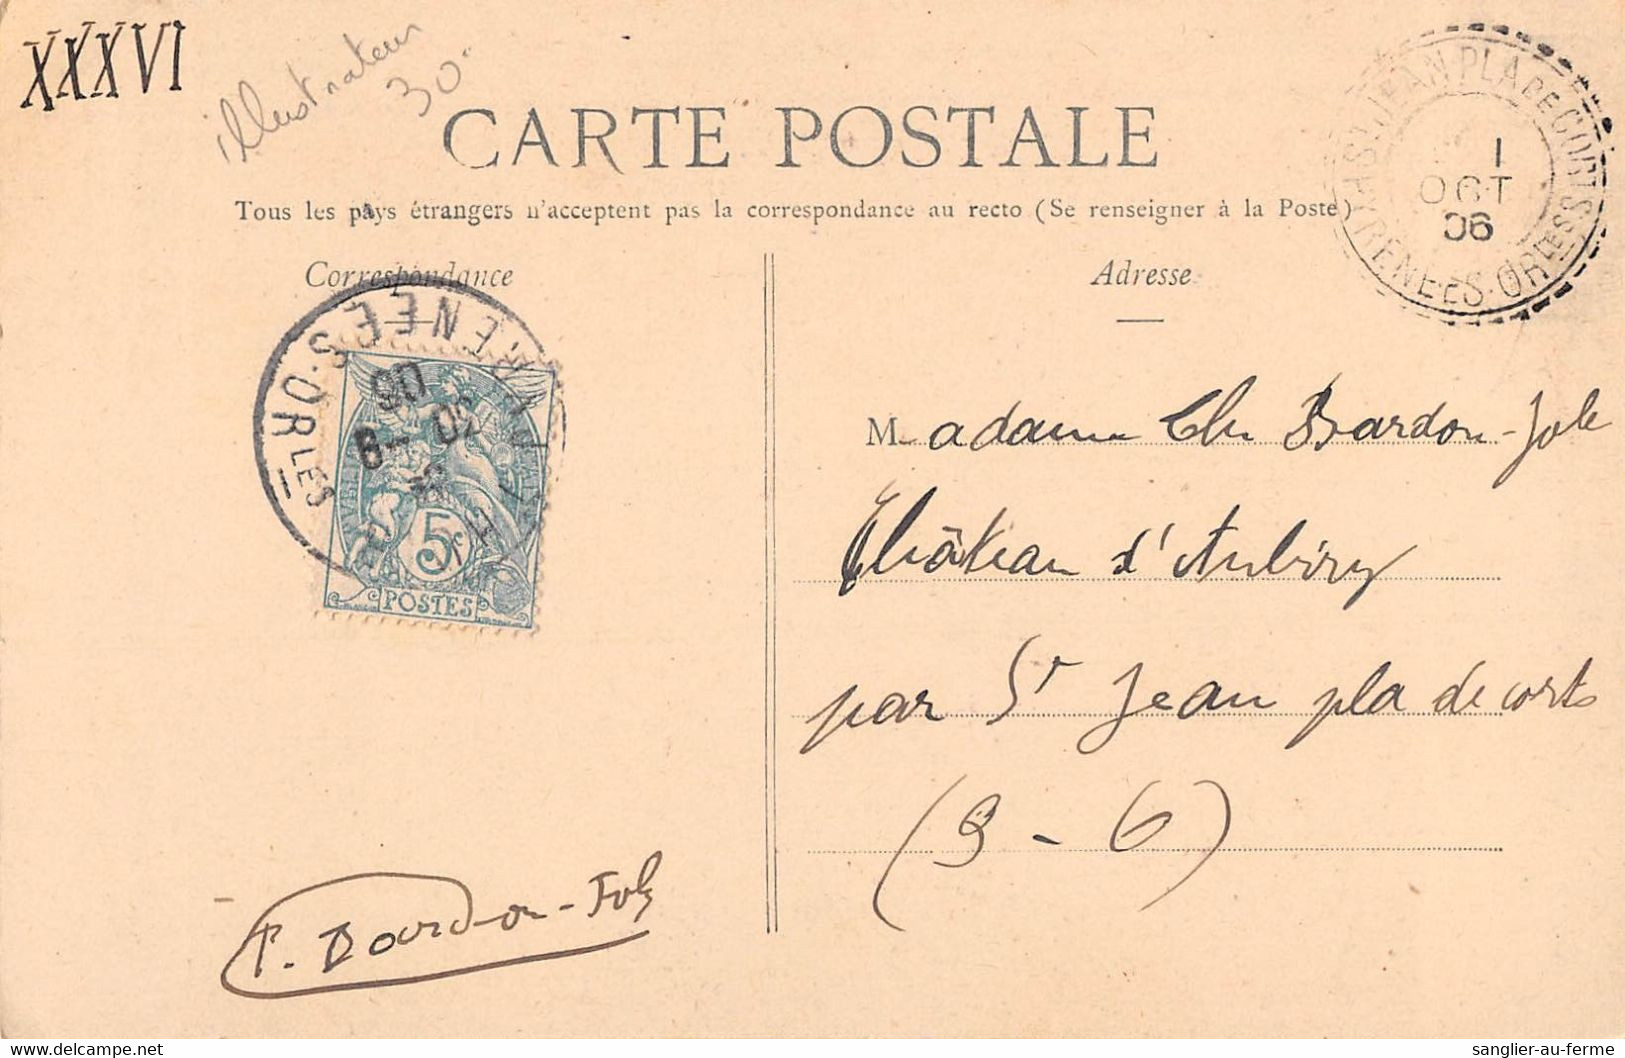 XXXVI
illustrateur
30.
CARTE POSTALE
Tous les pays étrangers n'acceptent pas la correspondance au recto (Se renseigner à la Poste)
Correspondance
Adresse
ST JEAN PLA DE CORTS
PYRENEES-ORLES
1
OCT
06
PYRENEES-ORLES
8 - 30
06
5c
POSTES
Madame Ch Bardou-Job
Château d'Aubiry
par St Jean pla de corts
(3 - 6)
P. Bardou-Job
sanglier-au-ferme